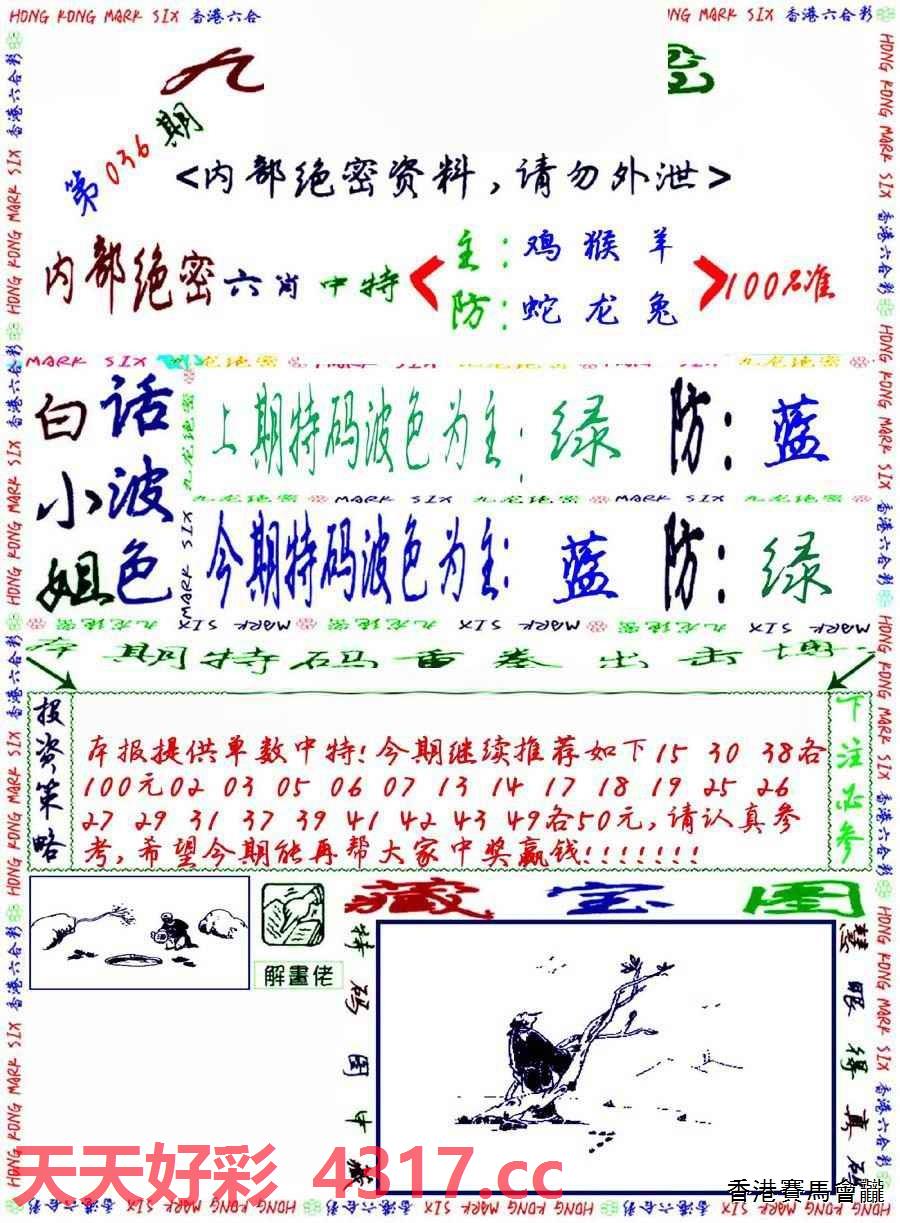 HONG KONG MARK SIX 香港六合
NG MARK SIX 香港六合彩
九
密
第036期
<内部绝密资料,请勿外泄>
内部绝密六肖 中特
主:鸡 猴 羊
防:蛇 龙 兔
100%准
MARK SIX 九龙绝密
白话
小波
姐色
上期特码波色为主:绿 防:蓝
九龙绝密 MARK SIX 九龙绝密 MARK SIX 九龙绝密
今期特码波色为主:蓝 防:绿
本期特码重拳出击
投资策略
本报提供单数中特!今期继续推荐如下15 30 38各
100元02 03 05 06 07 13 14 17 18 19 25 26
27 29 31 37 39 41 42 43 49各50元,请认真参
考,希望今期能再帮大家中奖赢钱!!!!!!!
下注必参
解畫佬
藏宝图
特码图中藏
慧眼得真码
天天好彩 4317.cc
香港賽馬會
HONG KONG MARK SIX 香港六合彩